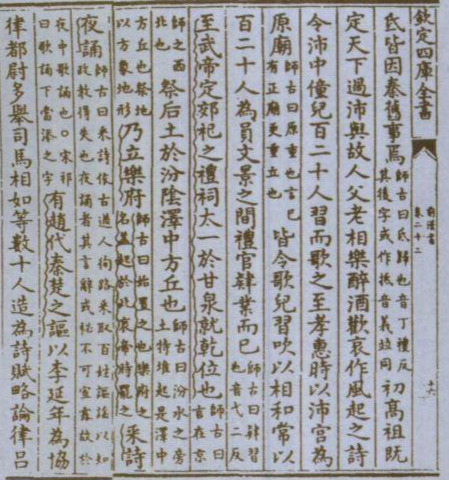 欽定四庫全書
前漢書
卷二十二
十六
氐皆因秦舊事焉師古曰氐歸也音丁禮反其後字或作抵音義並同初高祖既
定天下過沛與故人父老相樂醉酒歡哀作風起之詩
令沛中僮兒百二十人習而歌之至孝惠時以沛宮為
原廟師古曰原重也言已有正廟更重立也皆令歌兒習吹以相和常以
百二十人為員文景之間禮官肄業而已師古曰肄習也音弋二反
至武帝定郊祀之禮祠太一於甘泉就乾位也師古曰言在京
師之西北也祭后土於汾陰澤中方丘也師古曰汾水之旁土特堆起是澤中
方丘也祭地以方象地形乃立樂府師古曰始置之也樂府之名蓋起於此哀帝時罷之采詩
夜誦師古曰采詩依古道人徇路采取百姓謳謠以知政教得失也夜誦者其言辭或祕不可宣露故於
夜中歌誦也○宋祁曰歌誦下當添之字有趙代秦楚之謳以李延年為協
律都尉多舉司馬相如等數十人造為詩賦略論律呂